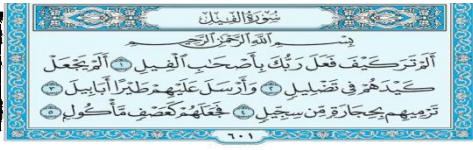 سُورَةُ الْفِيلِ
بِسْمِ اللَّهِ الرَّحْمَٰنِ الرَّحِيمِ
أَلَمْ تَرَ كَيْفَ فَعَلَ رَبُّكَ بِأَصْحَابِ الْفِيلِ ١ أَلَمْ يَجْعَلْ
كَيْدَهُمْ فِي تَضْلِيلٍ ٢ وَأَرْسَلَ عَلَيْهِمْ طَيْرًا أَبَابِيلَ ٣
تَرْمِيهِم بِحِجَارَةٍ مِّن سِجِّيلٍ ٤ فَجَعَلَهُمْ كَعَصْفٍ مَّأْكُولٍ ٥
٦٠١